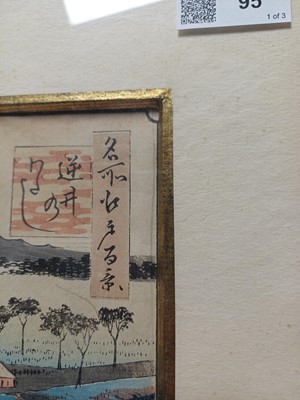 95
1 of 3
名所江戸百景
逆井の
わたし